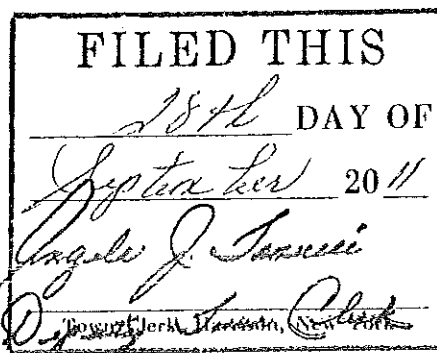 FILED THIS
28th DAY OF
September 2011
Angela J.
Deputy Town Clerk
Town Clerk, New York